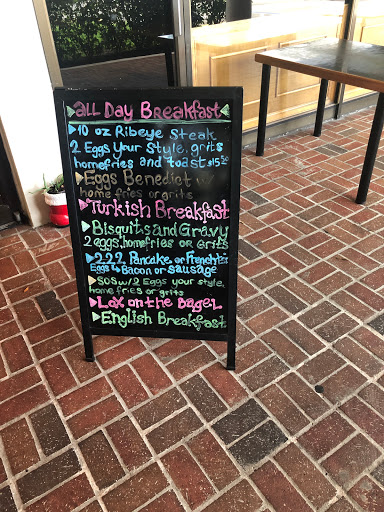 All Day Breakfast
10 oz Ribeye Steak
2 Eggs Your Style, grits
homefries and toast $15
Eggs Benedict w
home fries or grits
Turkish Breakfast
Bisquits and Gravy
2 eggs, homefries or Grits
2.2.2. Pancake, or French
Eggs & Bacon or sausage
SOS w/ 2 Eggs your style,
home fries or grits
Lox on the Bagel
English Breakfast